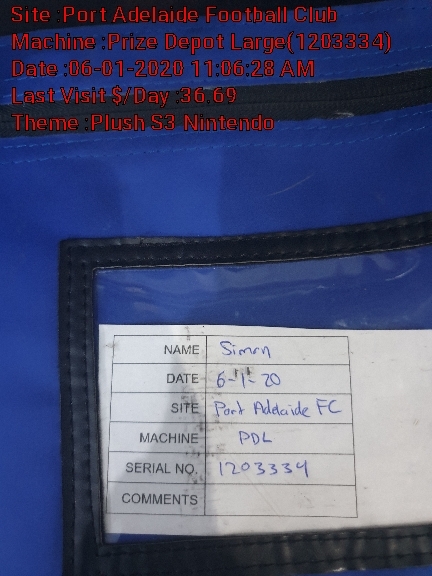 Site :Port Adelaide Football Club
Machine :Prize Depot Large(1203334)
Date :06-01-2020 11:06:28 AM
Last Visit $/Day :36.69
Theme :Plush S3 Nintendo
NAME Simon
DATE 6-1-20
SITE Port Adelaide FC
MACHINE PDL
SERIAL NO. 1203334
COMMENTS